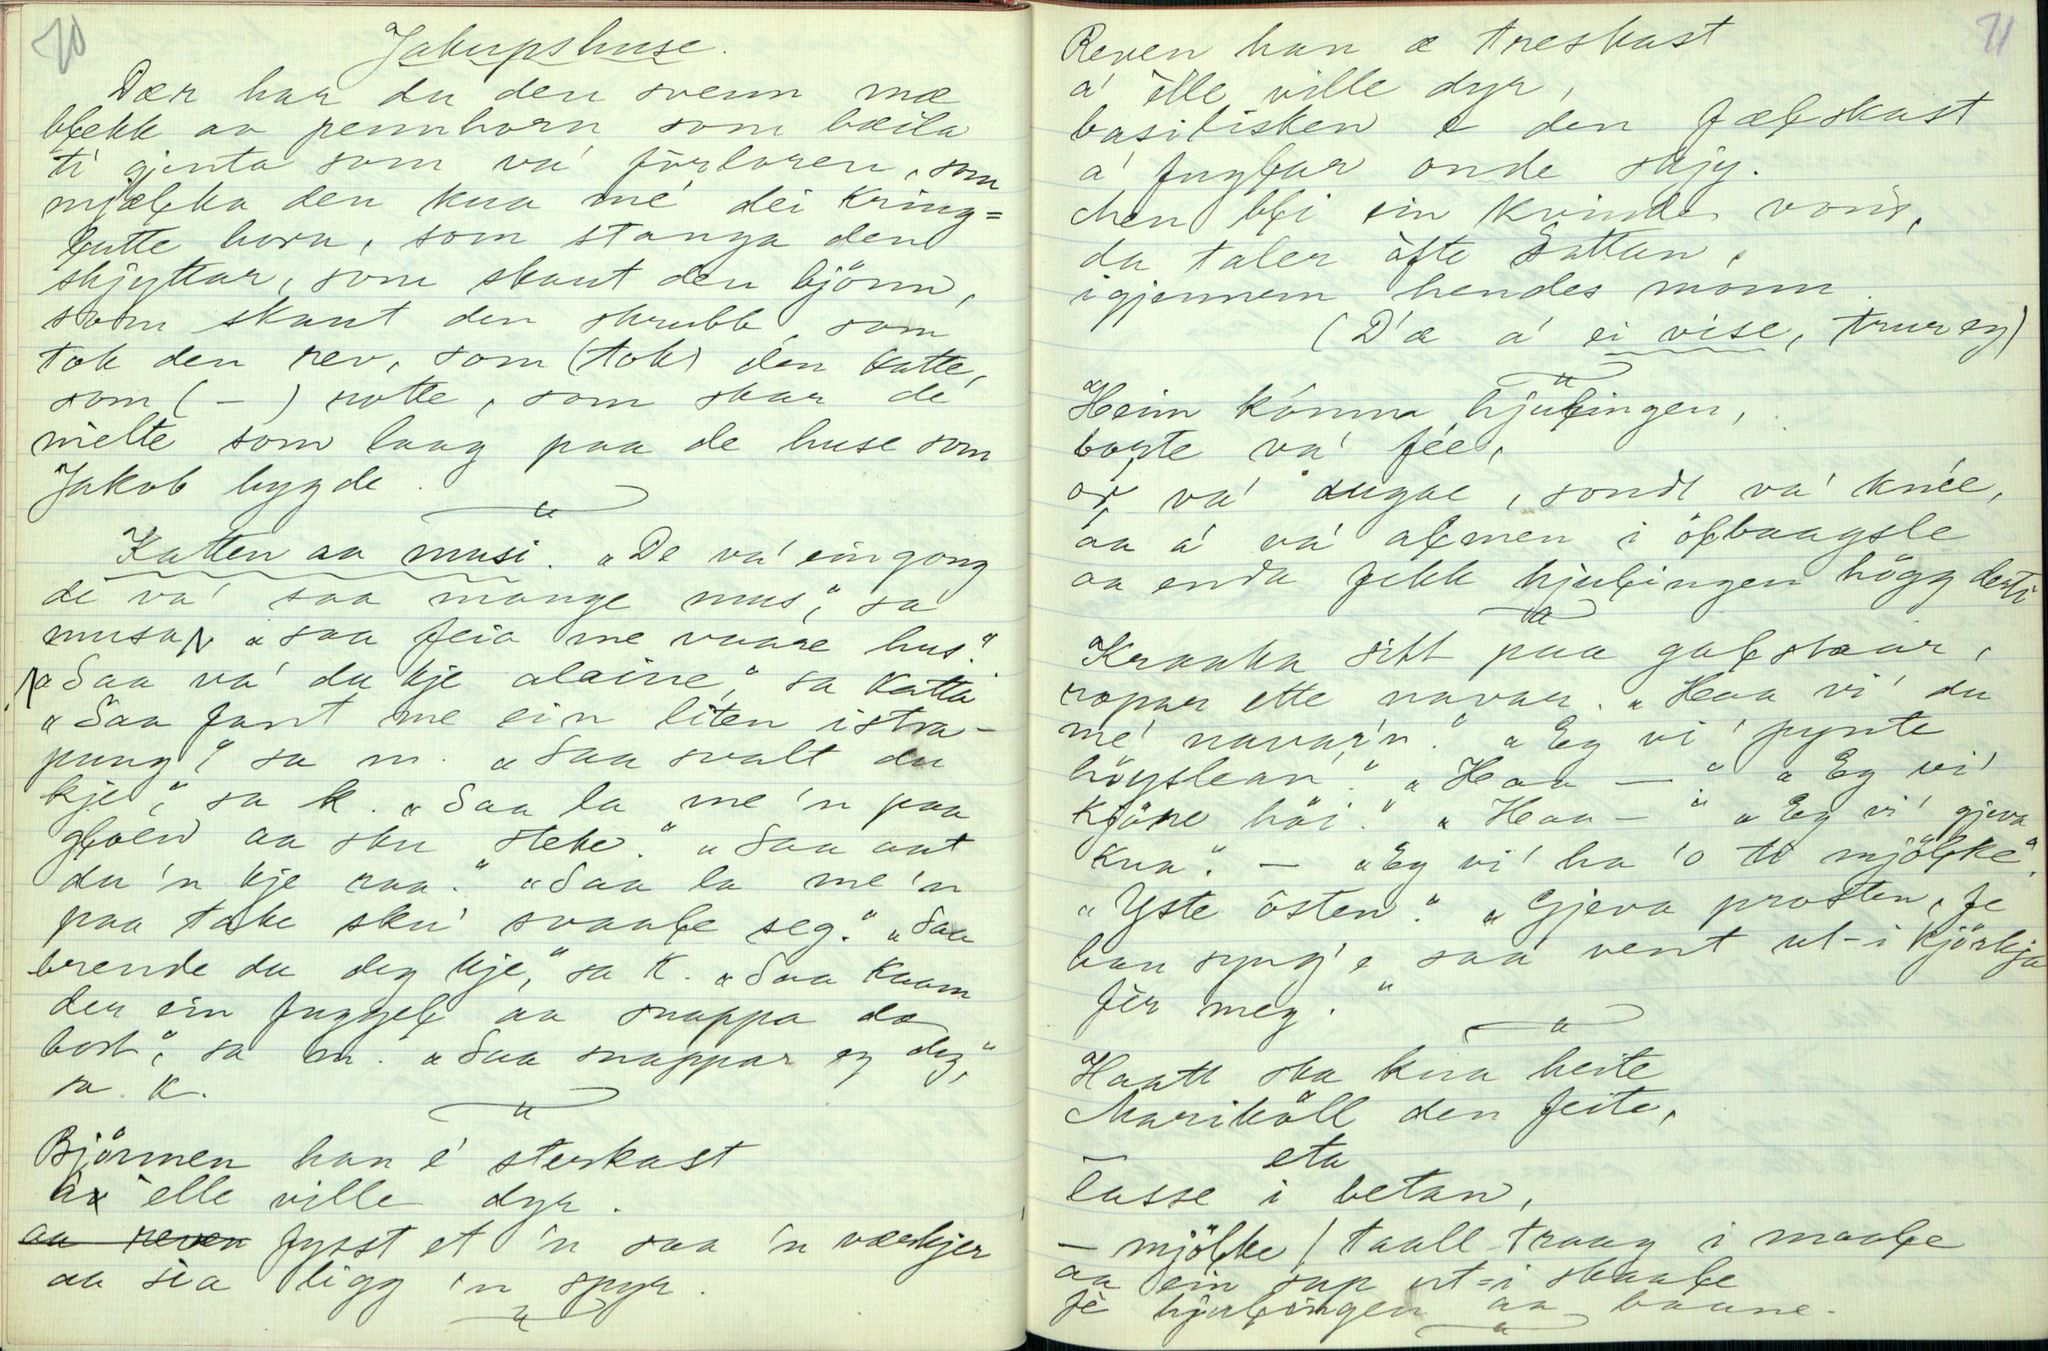 70
Jakupshuse.
Dær har du den svenn mæ
blekk aa pennhorn som bæila
ti gjenta som va' förloren, som
mjælka den kua me' dei kring=
lutte horn, som stanga den
skjyttar, som skaut den björn,
som skaut den skrubb, som
tok den rev, som (tok) den katte,
som ( — ) rotte, som skar de
melte som laag paa de huse som
Jakob bygde.
Katten aa musi. "De va' ein gong
de va' saa mange mus", sa
musa, "saa feia me vaare hus."
"Saa va' du kje alaine", sa katta
"Saa fant me ein liten istra-
pung", sa m. "Saa svalt du
kje", sa k. "Saa la me 'n paa
gloen aa sku steke." "Saa aat
du 'n kje raa." "Saa la me 'n
paa take sku' svaale seg." "Saa
brende du deg kje," sa K. "Saa kaam
der ein fuggel aa snappa da
bort", sa m. "Saa snappar eg deg,"
sa K.
Björnen han e' sterkast
a' elle ville dyr.
aa reven fysst et 'n saa 'n værkjer
aa sia ligg 'n spyr.
71
Reven han æ treskast
a' elle ville dyr,
basilisken e den fælskast
a' fuglar onde skjy.
Men bli ein kvinde vons,
da taler ofte Sattan,
igjennem hendes monn.
(D'æ a' ei vise, trur eg)
Heim komma hjulingen,
borte va' fée,
or va' augae, sondt va' knée,
aa a' va' almen i ölbaagsle
aa enda fekk hjulingen högg derti
Kraaka sitt paa galstaur,
ropar ette navar. "Haa vi' du
me' navar'n." "Eg vi' pynte
höyslean." "Haa — " "Eg vi'
kjöre höi." "Haa — " "Eg vi' gjeva
kua." — "Eg vi' ha 'o ti mjölke".
"Yste osten." "Gjeva prosten, fe
han syng'e saa vent ut-i kjörkja
fer meg."
Haatt ska kua heite
Marikoll den feite,
eta
lasse i betan,
— mjölke / taall-traag i maale
aa ein sup ut-i skaale
fe hjulingen aa baane.